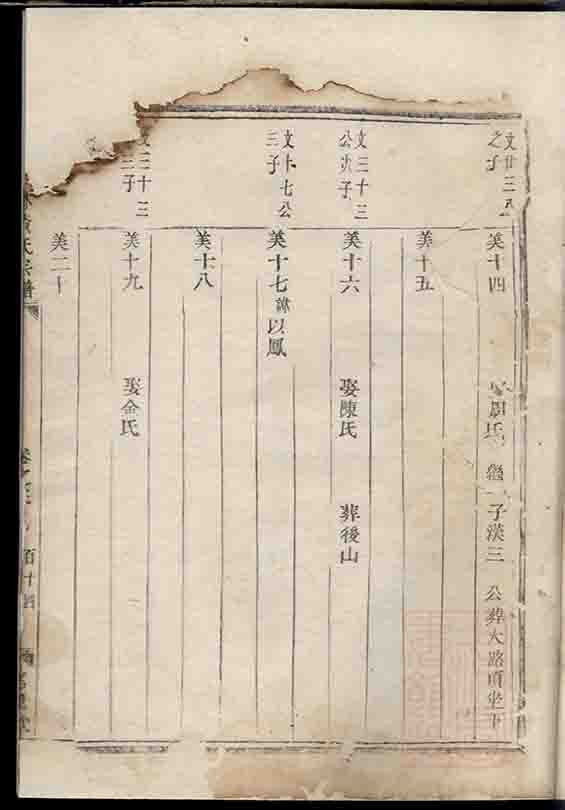 文廿三公之子
美十四 娶周氏 繼一子漢三 公葬大路頭坐
美十五
文三十三公次子
美十六 娶陳氏 葬後山
文十七公三子
美十七 諱以鳳
美十八
文三十三 三子
美十九 娶金氏
美二十
黃氏宗譜 百十四